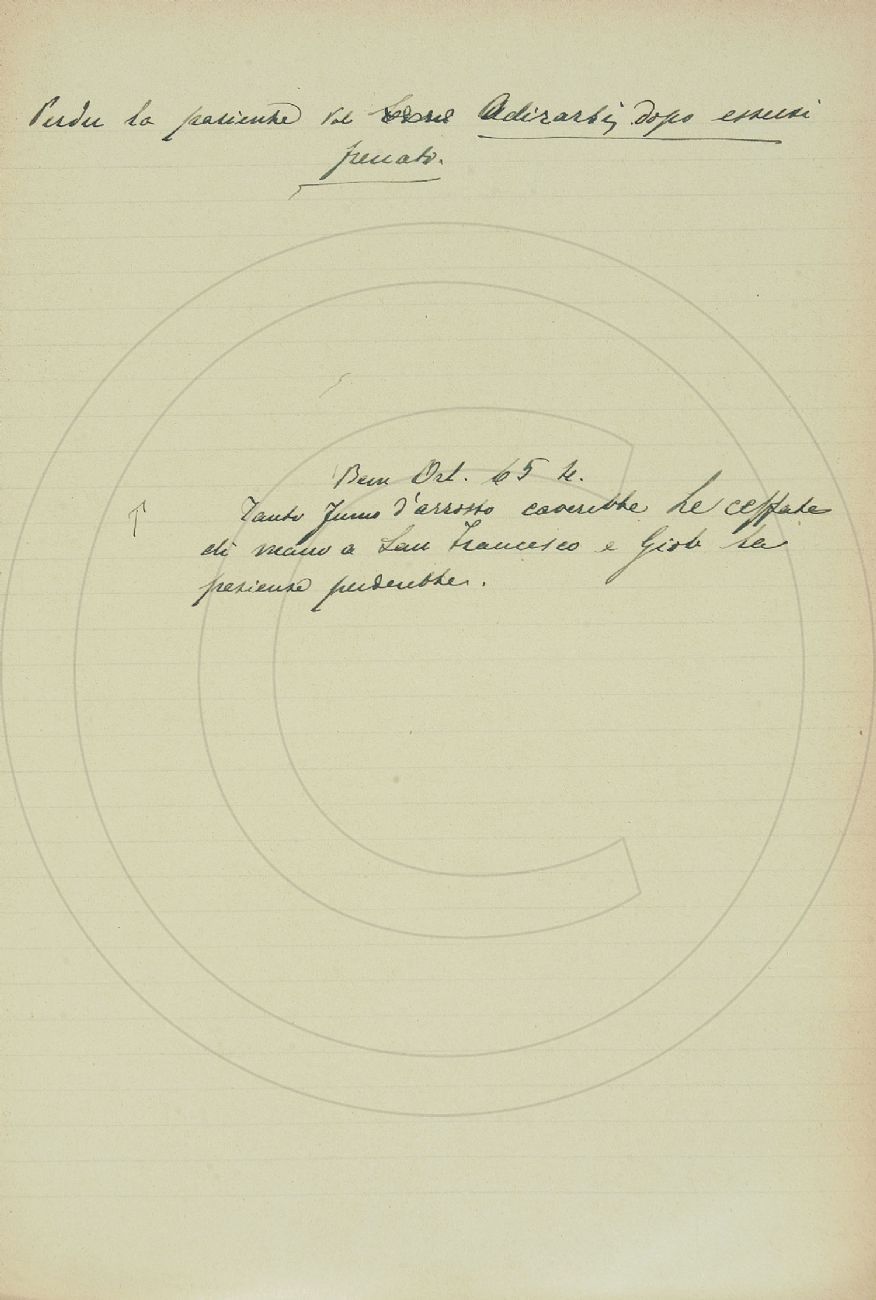 Perder la pazienza Val Adirarsi, dopo essersi
frenato.
Bern Orl. 65 4.
Tanto fumo d'arrosto caverebbe le ceffate
di mano a San Francesco e Giob la
pazienza perderebbe.